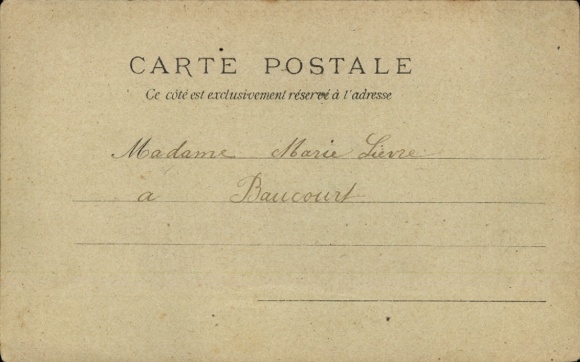 CARTE POSTALE
Ce côté est exclusivement réservé à l'adresse
Madame Marie Lièvre
à Baucourt